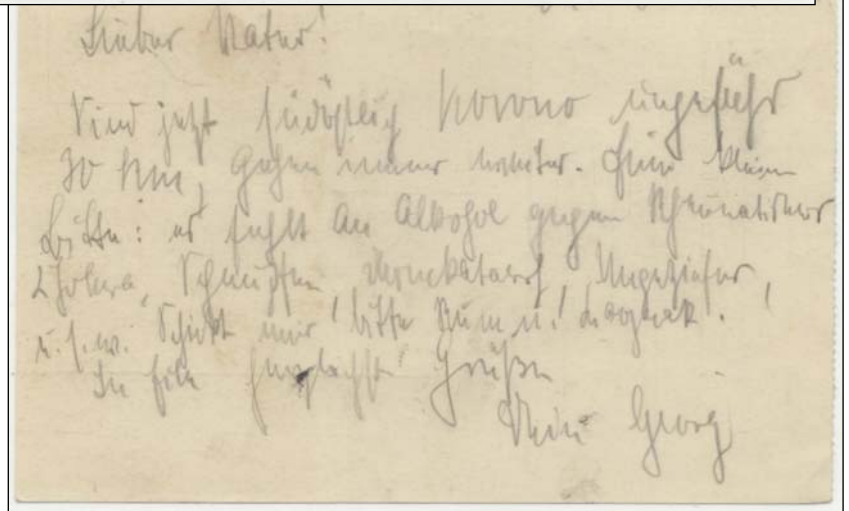 Lieber Vater!
Sind jetzt südöstlich Kowno ungefähr
30 km, gehen immer weiter. Eine kleine
Bitte: es fehlt an Alkohol gegen Rheumatismus
Cholera, Schnupfen, Ungeziefer,
u.s.w. Schickt mir bitte Rum u. Cognak!
In Eile herzlichste Grüße
Dein Georg